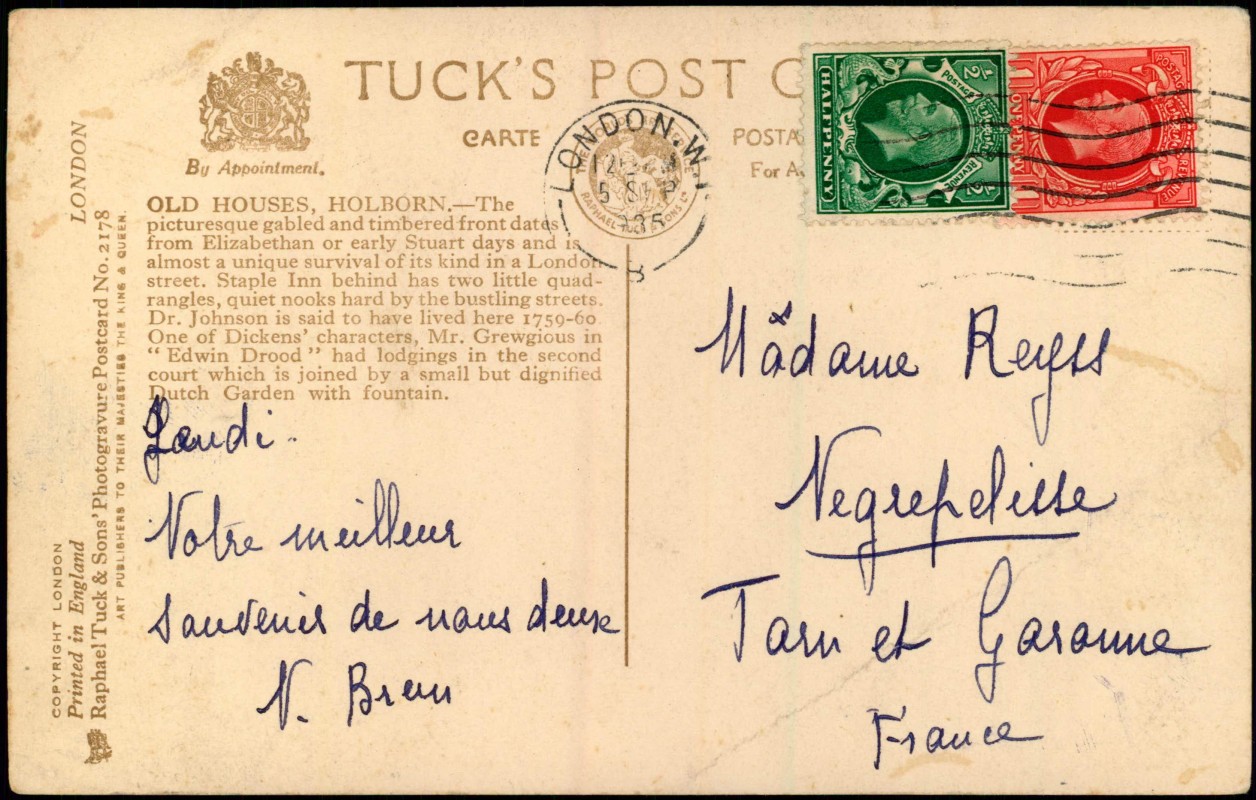 TUCK'S POST C
By Appointment.
CARTE
POSTA
For A
LONDON
OLD HOUSES, HOLBORN.—The
picturesque gabled and timbered front dates
from Elizabethan or early Stuart days and is
almost a unique survival of its kind in a London
street. Staple Inn behind has two little quad-
rangles, quiet nooks hard by the bustling streets.
Dr. Johnson is said to have lived here 1759-60
One of Dickens' characters, Mr. Grewgious in
"Edwin Drood" had lodgings in the second
court which is joined by a small but dignified
Dutch Garden with fountain.
COPYRIGHT LONDON
Printed in England
Raphael Tuck & Sons' Photogravure Postcard No. 2178
ART PUBLISHERS TO THEIR MAJESTIES THE KING & QUEEN.
LONDON. W. 1
5 SEP
1935
B
RAPHAEL TUCK & SONS LD
½ ½
POSTAGE
REVENUE
HALFPENNY
POSTAGE
REVENUE
ONE PENNY
Jeudi.
Notre meilleur
souvenir de nous deux
N. Brun
Madame Reyss
Negrepelisse
Tarn et Garonne
France